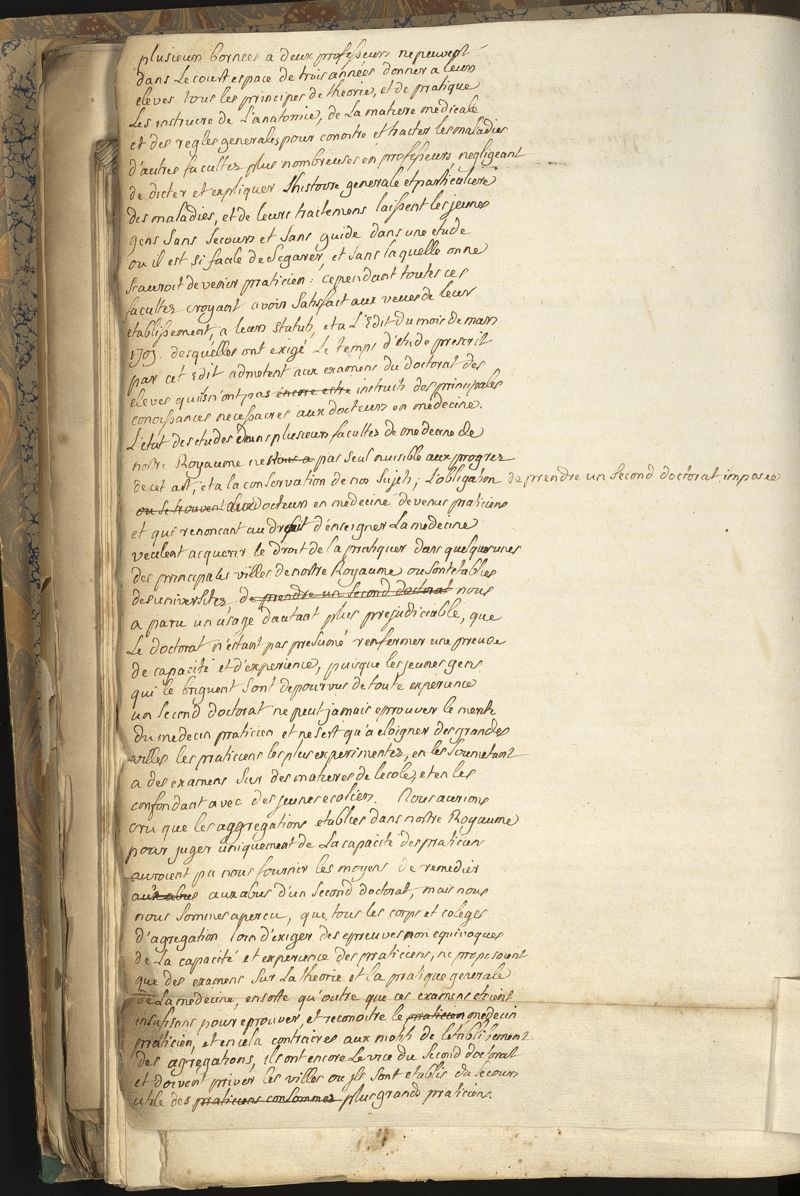 plusieurs bornées a deux professeurs ne peuvent
dans le court espace de trois années donner a leurs
eleves tous les principes de theorie, et de pratique
les instruire de l'anatomie, de la matiere medicale
et des regles generales pour conoitre et traiter les maladies
d'autres facultez plus nombreuses en professeurs negligeant
de dicter et expliquer l'histoire generale et particuliere
des maladies, et de leurs traitemens laissent les jeunes
gens sans secours et sans guide dans une etude
ou il est si facile de s'egarer, et sans laquelle on ne
scauroit devenir praticien : cependant toutes ces
facultez croyant avoir satisfait aux veues de leur
etablissement, a leurs statuts, et a l'Edit du mois de mars
1707. desqu'elles ont exigé le temps d'etude prescrit
par cet Edit admettent aux examens du doctorat des
eleves qui n'ont pas encore estre instruits des principales
conoissances necessaires aux docteurs en medecine.
L'etat des etudes dans plusieurs facultez de medecine de
nostre Royaume n'est pas seul nuisible aux progrez
de cet art, et a la conservation de nos sujets; l'obligation de prendre un second doctorat, imposée
ou se trouvent aux docteurs en medecine devenus praticiens
et qui renoncant au droit d'enseigner la medecine
veulent acquerir le droit de la pratiquer dans quelques unes
des principales villes de nostre Royaume ou sont etablies
des universitez, de prendre un second doctorat nous
a paru un usage d'autant plus prejudiciable, que
le doctorat n'étant pas presumé renfermer une preuve
de capacité et d'experience, puisque les jeunes gens
qui le briguent sont depourvus de toute experience
un second doctorat ne peut jamais eprouver le merite
du medecin praticien et ne sert qu'a eloigner des grandes
villes les praticiens les plus experimentez, en les soumettant
a des examens sur des matieres de l'ecole, et en les
confondant avec des jeunes ecoliers. Nous aurions
cru que les aggregations etablies dans nostre Royaume
pour juger uniquement de la capacité des praticiens
auroient pu nous fournir les moyens de remedier
aux abus aux abus d'un second doctorat, mais nous
nous sommes apercu, que tous les corps et coleges
d'agregation loin d'exiger des epreuves non equivoques
de la capacité et experience des praticiens, ne proposoient
que des examens sur la theorie et la pratique generale
de la medecine, ensorte qu'outre que ces examens etoient
insufisans pour eprouver, et reconoitre le praticien medecin
praticien, et en cela contraires aux motifs de l'etablissement
des agregations, ils ont encore le vice du second doctorat
et doivent priver les villes ou ils sont etablis du secours
utile des praticiens consommez plus grands praticiens.